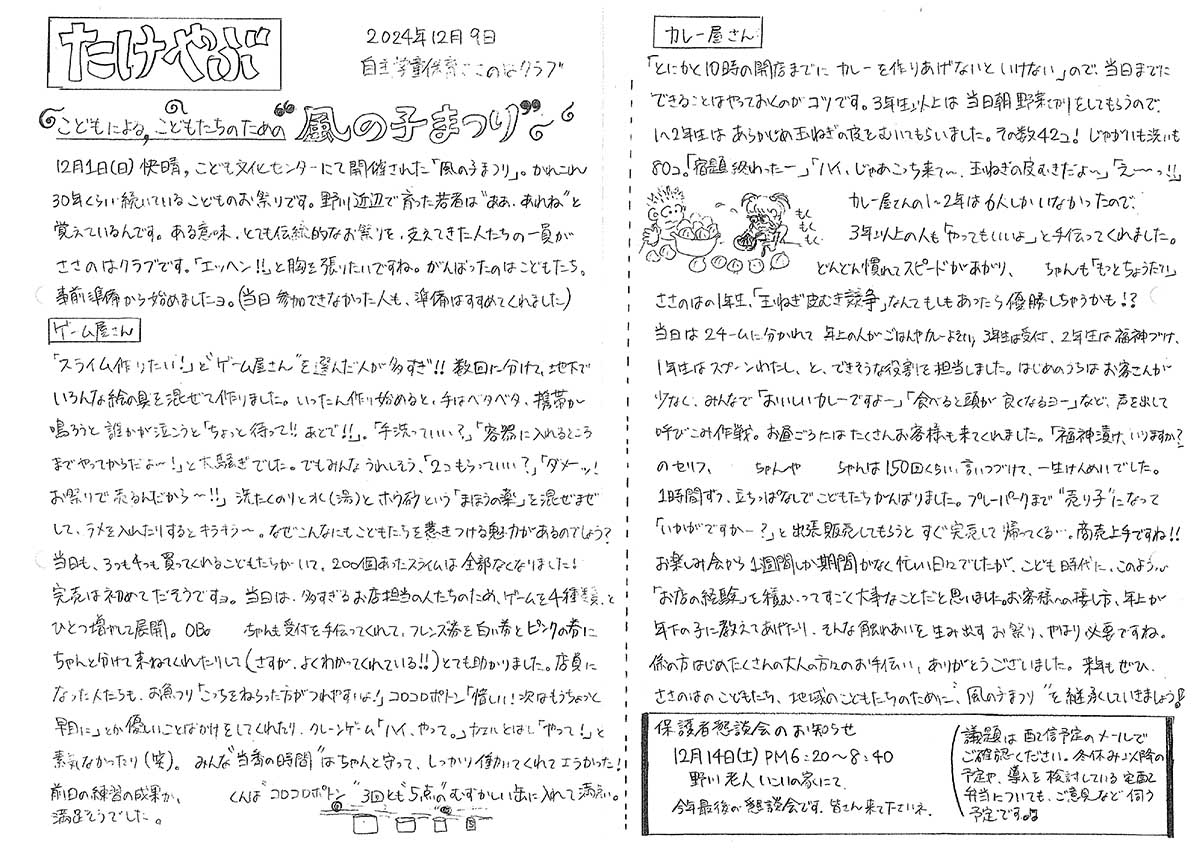 たけやぶ
2024年12月9日
自主学童保育ささのはクラブ
こどもによる,こどもたちのための“風の子まつり”
12月1日(日)快晴,こども文化センターにて開催された「風の子まつり」。かれこれ
30年くらい続いているこどものお祭りです。野川近辺で育った若者は“ああ、あれね”と
覚えているんです。ある意味、とても伝統的なお祭りを、支えてきた人たちの一員が
ささのはクラブです。「エッヘン!!」と胸を張りたいですね。がんばったのはこどもたち。
事前準備から始めましたョ。(当日参加できなかった人も、準備はすすめてくれました)
ゲーム屋さん
「スライム作りたい!」と“ゲーム屋さん”を選んだ人が多すぎ!!数回に分けて、地下で
いろんな絵の具を混ぜて作りました。いったん作り始めると、手はベタベタ、携帯が
鳴ろうと誰かが泣こうと「ちょっと待って!!あとで!!」。「手洗っていい?」「容器に入れるところ
までやってからだよ〜!」と大騒ぎでした。でもみんなうれしそう、「2つもらっていい?」「ダメーッ!
お祭りで売るんだから〜!!」洗たくのりと水(湯)とホウ砂という「まほうの薬」を混ぜまぜ
して、ラメを入れたりするとキラキラ〜。なぜこんなにもこどもたちを惹きつける魅力があるのでしょう?
当日も、3つも4つも買ってくれるこどもたちがいて、200個あったスライムは全部なくなりました!
完売は初めてだそうですョ。当日は、多すぎるお店担当の人たちのため、ゲームを4種類、と
ひとつ増やして展開。OBの ちゃんも受付を手伝ってくれて、フレンズ券を白い券とピンクの券に
ちゃんと分けて束ねてくれたりして(さすが、よくわかってくれている!!)とても助かりました。店員に
なった人たちも、お魚つり「こっちをねらった方がつれやすいよ!」コロコロポトン「惜しい!次はもうちょっと
早目に」とか優しいことばかけをしてくれたり、クレーンゲーム「ハイ、やって。」カエルとばし「やって!」と
素気なかったり(笑)。みんな“当番の時間”はちゃんと守って、しっかり働いてくれてエラかった!
前日の練習の成果か、 くんは“コロコロポトン”3回とも“5点”のむずかしい缶に入れて満点。
満足そうでした。
カレー屋さん
「とにかく10時の開店までにカレーを作りあげないといけない」ので、当日までに
できることはやっておくのがコツです。3年生以上は当日朝野菜切りをしてもらうので、
1〜2年生はあらかじめ玉ねぎの皮をむいてもらいました。その数42コ!じゃがいも洗いも
80コ。「宿題終わったー」「ハイ、じゃあこっち来て〜、玉ねぎの皮むきだよ〜」「え〜っ!!」
カレー屋さんの1〜2年は6人しかいなかったので、
3年以上の人も「やってもいいよ」と手伝ってくれました。
もくもくもく
どんどん慣れてスピードがあがり、 ちゃんも「もっとちょうだい」
ささのはの1年生、「玉ねぎ皮むき競争」なんてもしもあったら優勝しちゃうかも!?
当日は2チームに分かれて 年上の人がごはんやカレーよそい、3年生は受付、2年生は福神づけ、
1年生はスプーンわたし、と、できそうな役割を担当しました。はじめのうちはお客さんが
少なく、みんなで「おいしいカレーですよー」「食べると頭が良くなるヨー」など、声を出して
呼びこみ作戦。お昼ごろにはたくさんお客様も来てくれました。「福神漬け、いりますか?」
のセリフ、 ちゃんや ちゃんは150回くらい言いつづけて、一生けんめいでした。
1時間ずつ、立ちっぱなしでこどもたちがんばりました。プレーパークまで“売り子”になって
「いかがですかー?」と出張販売してもらうとすぐ完売して帰ってくる…。商売上手ですね!!
お楽しみ会から1週間しか期間がなく忙しい日々でしたが、こども時代に、このような
「お店の経験」を積むってすごく大事なことだと思いました。お客様への接し方、年上が
年下の子に教えてあげたり、そんな触れあいを生み出すお祭り、やはり必要ですね。
係の方はじめたくさんの大人の方々のお手伝い、ありがとうございました。来年もぜひ、
ささのはのこどもたち、地域のこどもたちのために、“風の子まつり”を継承していきましょう!
保護者懇談会のお知らせ
12月14日(土)PM6:20〜8:40
野川老人いこいの家にて
今年最後の懇談会です。皆さん来てくださいネ。
議題は配信予定のメールで
ご確認ください。冬休み以降の
予定や、導入を検討している宅配
弁当についても、ご意見など伺う
予定です。